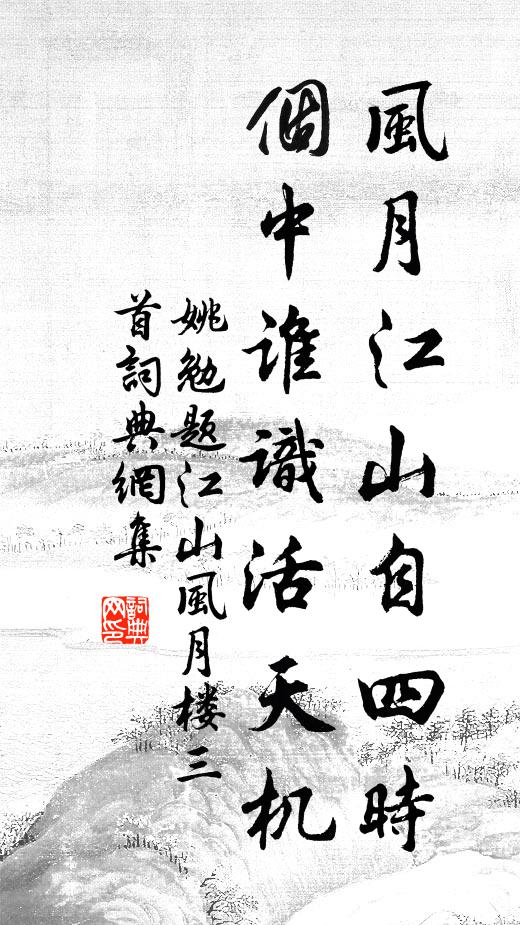 風月江山自四時
個中誰識活天机
姚勉题江山風月楼三
首詞典網集
詞典
网印